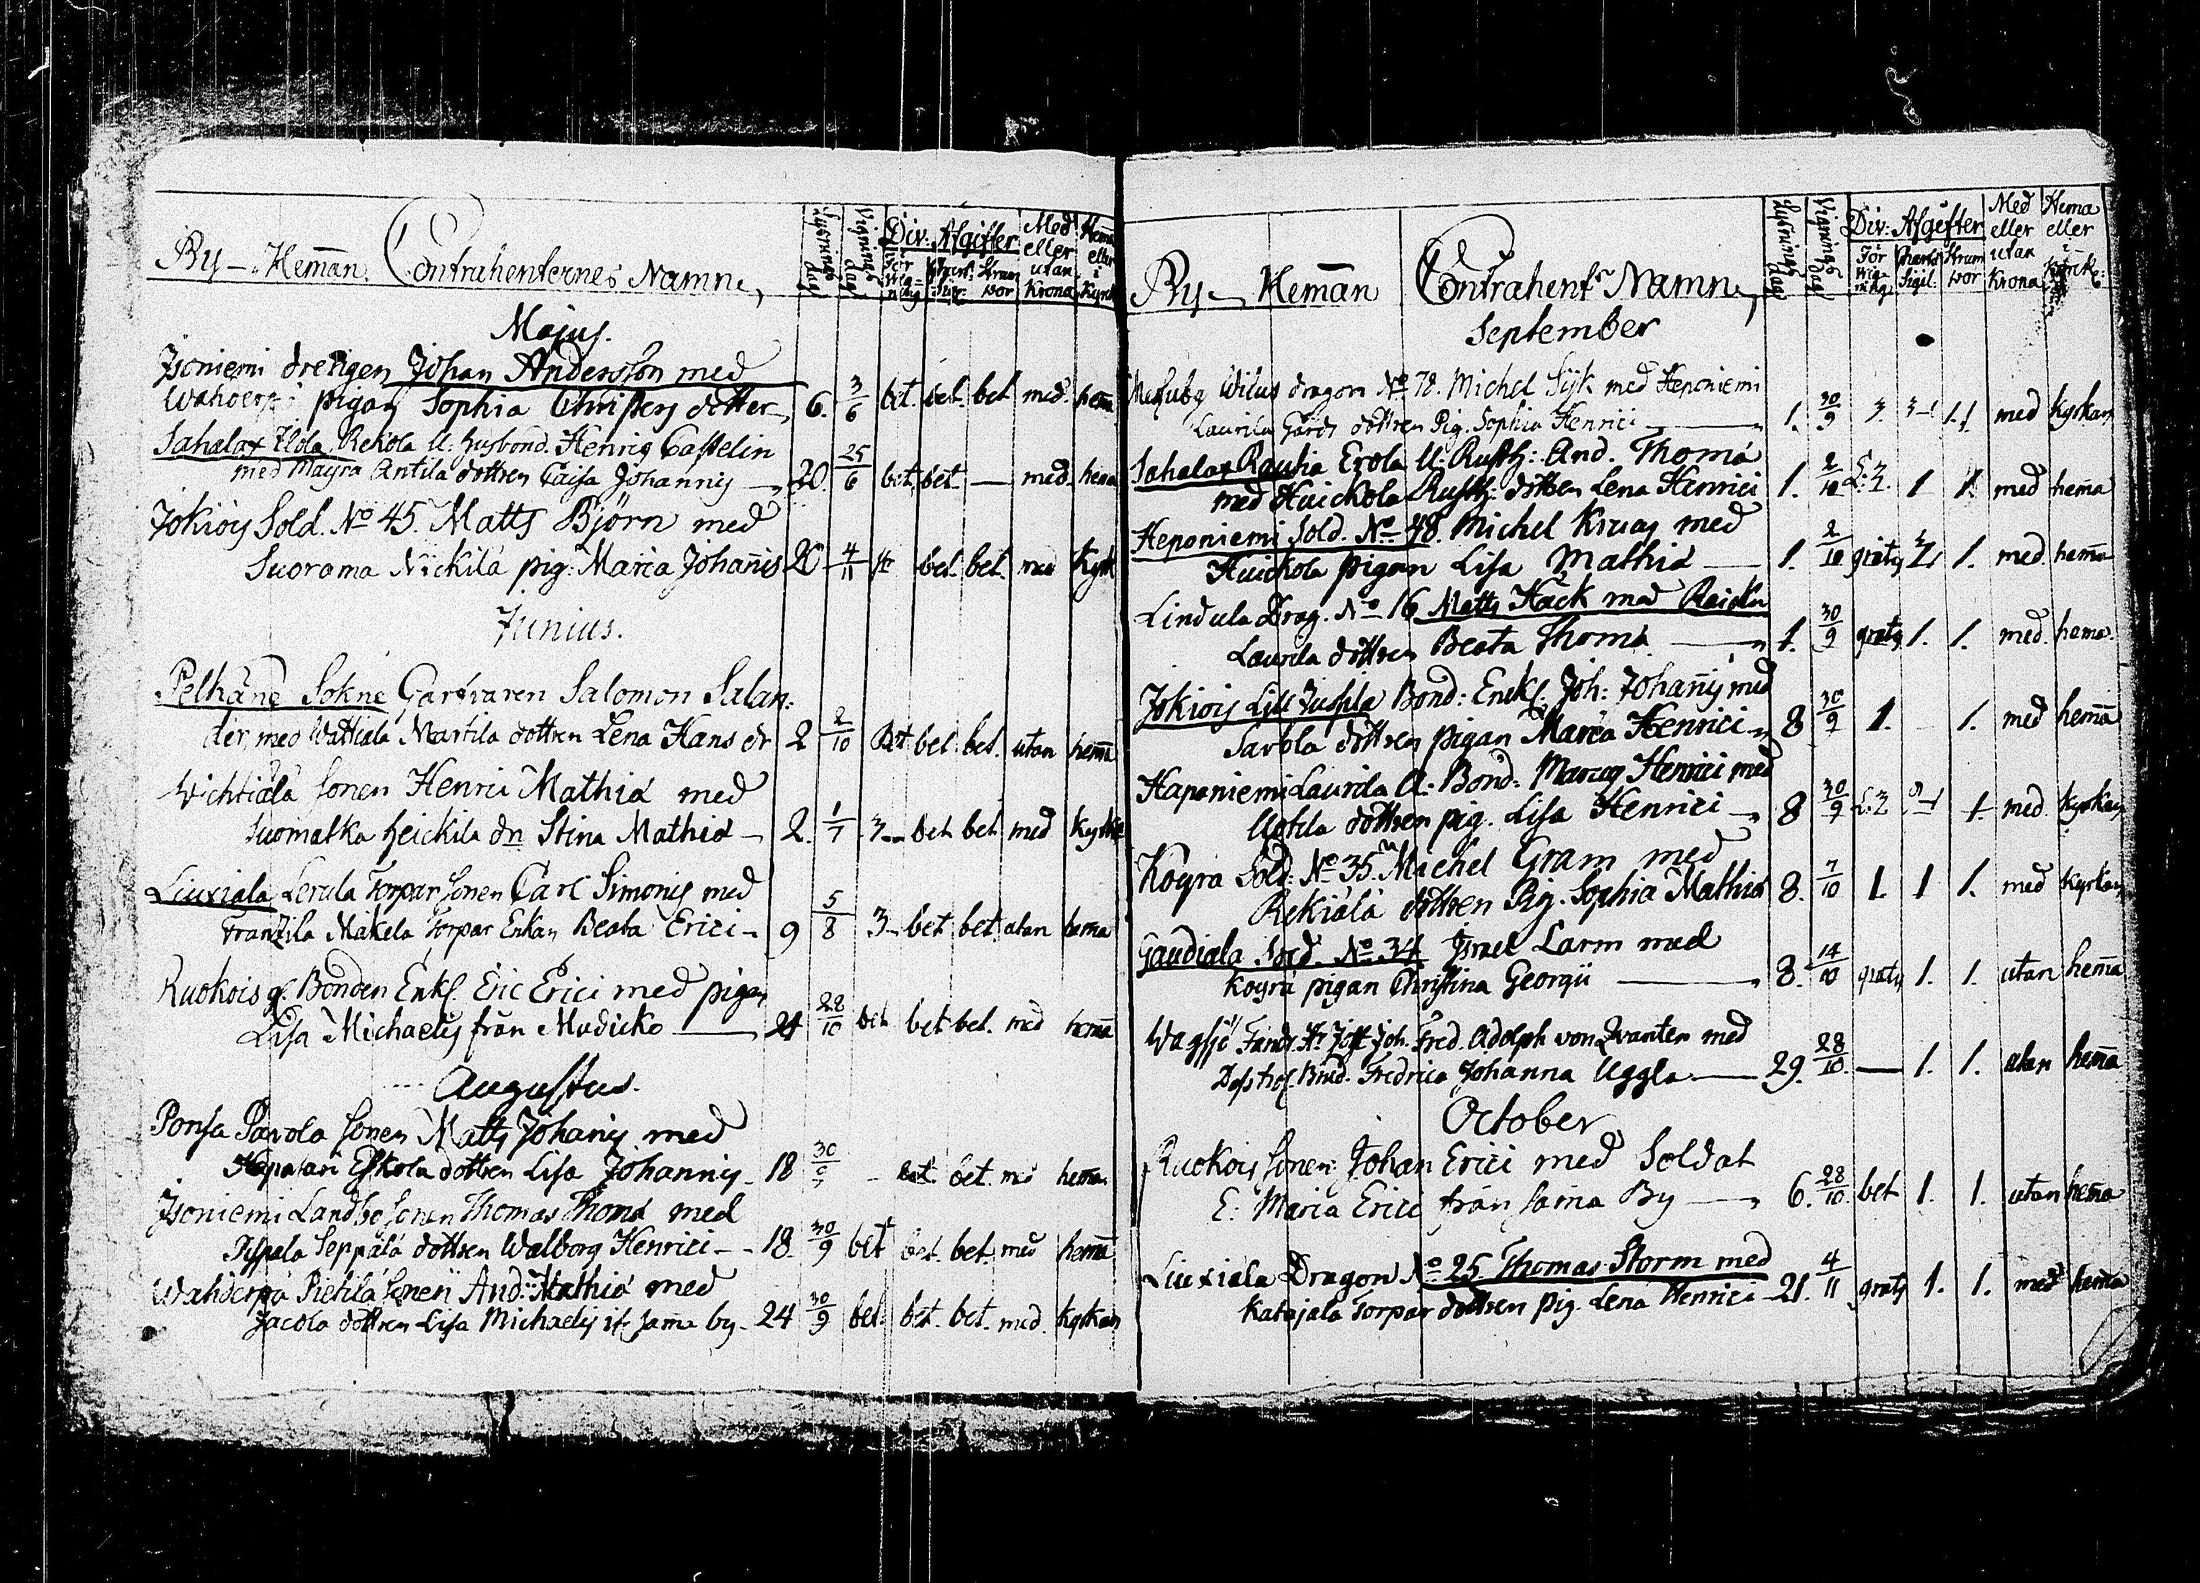 By — Heman. Contrahenternes Namn, Lysnings dag Vignings dag Div: Afgifter Med eller utan Krona Hema eller i Kyrk
Majus.
Isoniemi drengen Johan Andersson med
pigan Sophia dotter 6. 3/6 bet. bet. bet med. hema
Sahalax Rekola U. husbond. Henric Casselin
med Mayra Antila dottren Caisa Johannis — 20. 25/6 bet. bet. — med. hema
Jokiois Sold. No 45. Matts Björn med
Suorama Nickilä pig: Maria Johanis 20 4/11 bet. bet. med Kyrk
Junius.
Pelkäne Sokne Garfvaren Salomon Salan:
der med Wattiala Martila dottren Lena Hans dr 2 2/10 Bet bet. bet. utan hema
Wichtiälä sonen Henric Mathiæ med
Suomatka heickila dn Stina Mathiæ — 2. 1/7 3 — bet. bet. med Kyrk
Liuxiala Lerula Torpar sonen Carl Simonis med
Franzila Makela Torpar Enkan Beata Erici — 9 5/8 3 — bet bet utan hema
Ruokois g. Bonden Enkl. Eric Erici med pigan
Lisa Michaelis från — 28/10 bet bet. bet. med hema
Augustus.
Ponsa Pavola sonen Matts Johanis med
Eskola dottren Lisa Johannis — 18 30/9 — bet. bet. med hema
Isoniemi Landbo sonen Thomas Thomæ med
Seppälä dottren Walborg Henrici — 18. 30/9 bet bet. bet. med hema
Pietilä sonen And: Mathiæ med
Jacola dottren Lisa Michaelis if. sama by — 24 30/9 bet. bet. bet. med. kyrkan
By — Heman Contrahents Namn, Lysnings dag Vignings dag Div: Afgifter För vigning Charta Sigil. Krum vor Med eller utan Krona Hema eller i Kyrke:
September
dragon No 78. Michel Sijk med Heponiemi
Laurila Gårds dottren Pig. Sophia Henrici — 1. 30/9 3 1.1 med kyrkan
Sahalax Rautia Erola U: Rusth: And. Thomæ
med Huickola Rusth: dottren Lena Henrici 1. 2/10 1 1. med hema
Heponiemi Sold. No 48. Michel Kruus med
Huickola pigan Lisa Mathiæ — 1. 2/10 gratis 1. med. hema
Lindula Drag. No 16 Matts Hack med
Laurila dottren Beata Thomæ — 1. 30/9 gratis 1. 1. med. hema.
Jokiois Lill Bond: Enkl: Joh: Johanis med
Savola dottren pigan Maria Henrici — 8 30/9 1. 1. med hema
Haponiemi Laurila U: Bond: Marcus Henrici med
Uotila dottren pig. Lisa Henrici — 8 30/9 1. med. kyrkan
Koyra Sold: No 35. Michel Gram med
Rekiälä dottren Pig. Sophia Mathiæ 8. 7/10 1 1 1. med kyrkan
Gaudiala Sold. No 34 Israel Larm med
Koyra pigan Christina Georgii — 8. 14/10 gratis 1. 1. utan hema
Joh. Fred. Adolph von Qvanten med
Fredrica Johanna Uggla — 29. 28/10. — 1. 1. utan hema
October
Ruokois sonen Johan Erici med Soldat
E. Maria Erici från sama By — 6. 28/10 bet 1. 1. utan hema
Liuxiala Dragon No 25. Thomas Storm med
Katajala Torpar dottren pig. Lena Henrici — 21. 4/11 gratis 1. 1. med hema